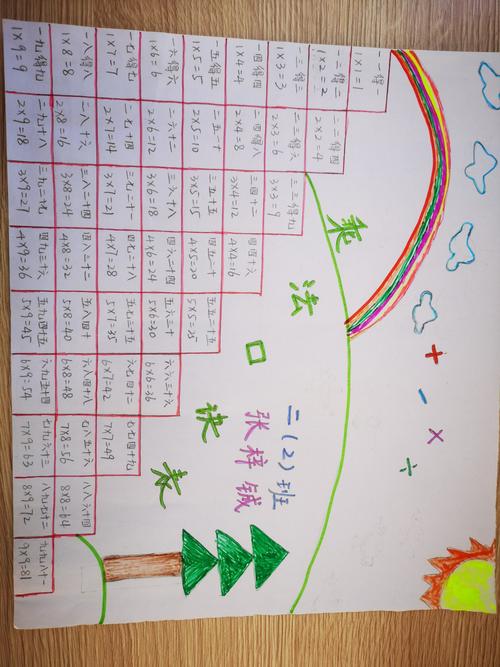 + - × ÷
乘法口诀表
二(2)班
张梓铖
一得一
1×1=1
一二得二 二二得四
1×2=2 2×2=4
一三得三 二三得六 三三得九
1×3=3 2×3=6 3×3=9
一四得四 二四得八 三四十二 四四十六
1×4=4 2×4=8 3×4=12 4×4=16
一五得五 二五一十 三五十五 四五二十 五五二十五
1×5=5 2×5=10 3×5=15 4×5=20 5×5=25
一六得六 二六十二 三六十八 四六二十四 五六三十 六六三十六
1×6=6 2×6=12 3×6=18 4×6=24 5×6=30 6×6=36
一七得七 二七十四 三七二十一 四七二十八 五七三十五 六七四十二 七七四十九
1×7=7 2×7=14 3×7=21 4×7=28 5×7=35 6×7=42 7×7=49
一八得八 二八十六 三八二十四 四八三十二 五八四十 六八四十八 七八五十六 八八六十四
1×8=8 2×8=16 3×8=24 4×8=32 5×8=40 6×8=48 7×8=56 8×8=64
一九得九 二九十八 三九二十七 四九三十六 五九四十五 六九五十四 七九六十三 八九七十二 九九八十一
1×9=9 2×9=18 3×9=27 4×9=36 5×9=45 6×9=54 7×9=63 8×9=72 9×9=81